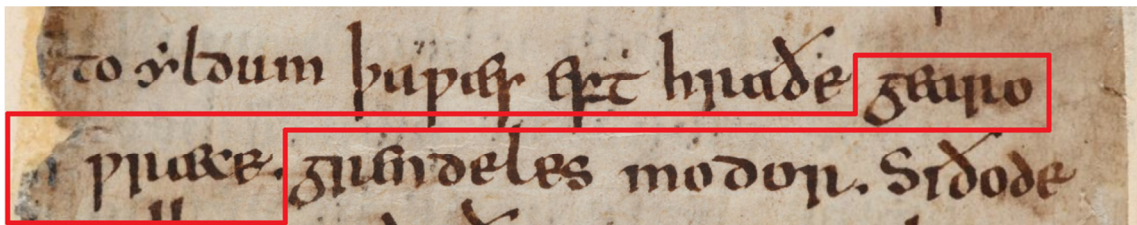 to yldum þa ƿæs eft hraðe gearo
ƿræce. grendeles modor. Siðode